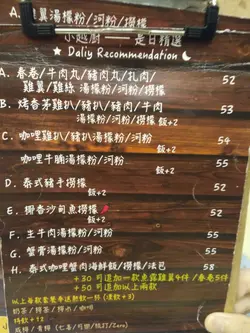 翼湯檬粉/河粉/撈檬
小越廚 一 是日精選
★ Daliy Recommendation
A. 春卷/牛肉丸/豬肉丸/扎肉/ 52
雞翼/雞絲 湯檬粉/河粉/撈檬
B. 烤香茅雞扒/豬扒/豬肉/牛肉 53
湯檬粉/河粉/撈檬 飯+2
C. 咖哩雞扒/豬扒 湯檬粉/河粉 54
飯+2
咖哩牛腩湯檬粉/河粉 55
飯+2
D. 泰式豬手撈檬 52
飯+2
E. 椰香沙甸魚撈檬 52
飯+2
F. 生牛肉湯檬粉/河粉 55
G. 蟹膏湯檬粉/河粉 55
H. 泰式咖哩蟹肉海鮮飯/撈檬/法包 58
+30 可追加一款魚露雞翼4件/春卷5件
+50 可追加以上兩款
以上每款套餐奉送熱飲一杯 (凍飲+3)
奶茶/檸茶/檸水/咖啡
特飲+12